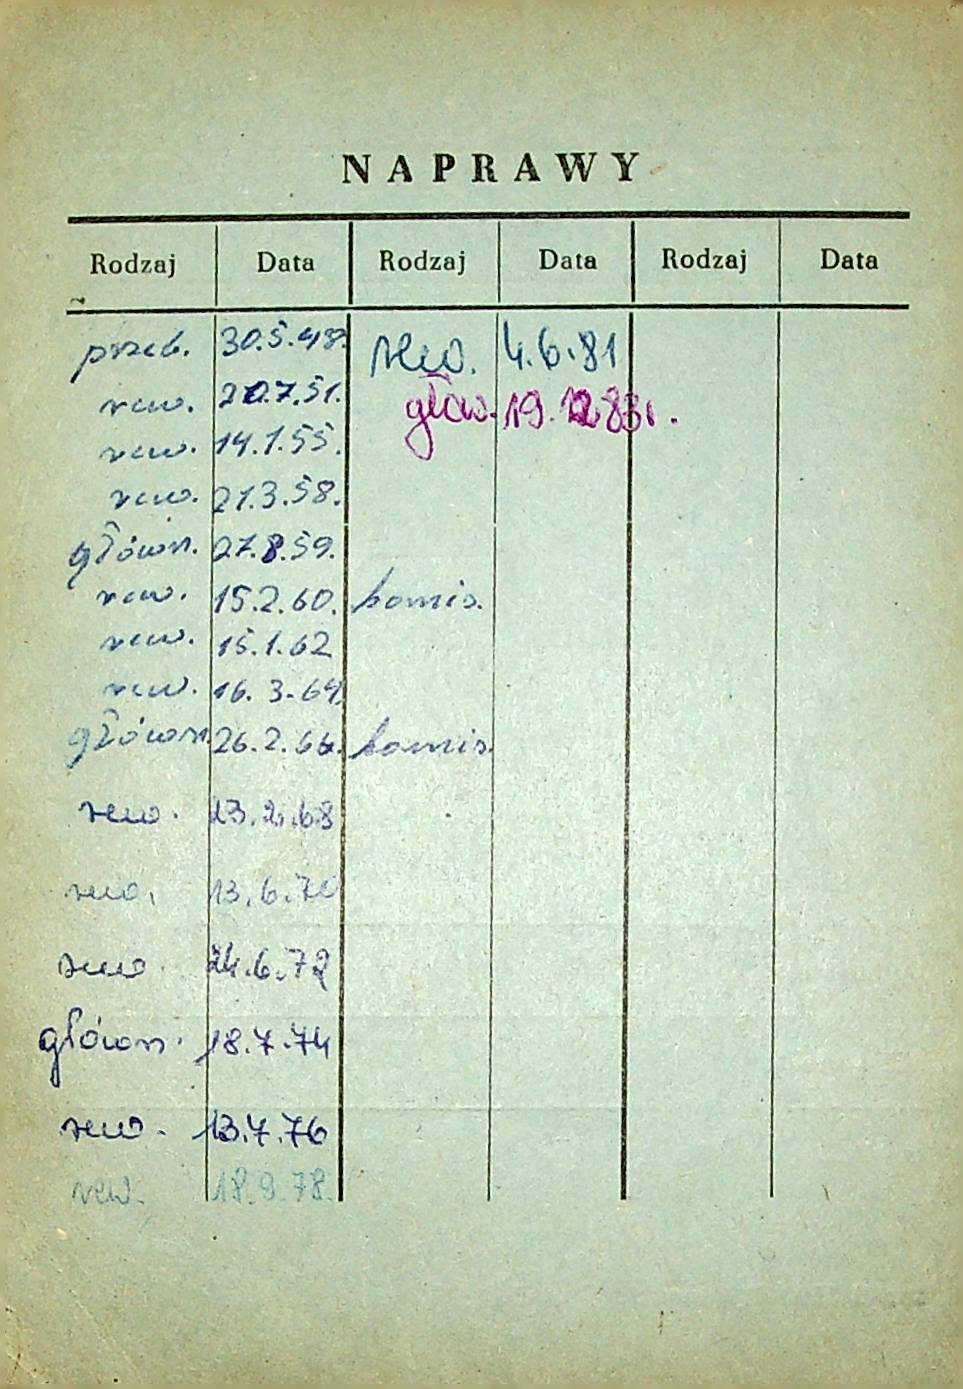 NAPRAWY
Rodzaj Data Rodzaj Data Rodzaj Data
przeb. 30.5.48. rew. 4.6.81
rew. 20.7.51. głów. 19.12.83r.
rew. 14.1.55.
rew. 21.3.58.
główn. 27.8.59.
rew. 15.2.60. komis.
rew. 15.1.62
rew. 16.3.64.
główn. 26.2.66. komis.
rew. 13.2.68
rew. 13.6.70
rew. 24.6.72
główn. 18.7.74
rew. 13.7.76
rew. 18.9.78.